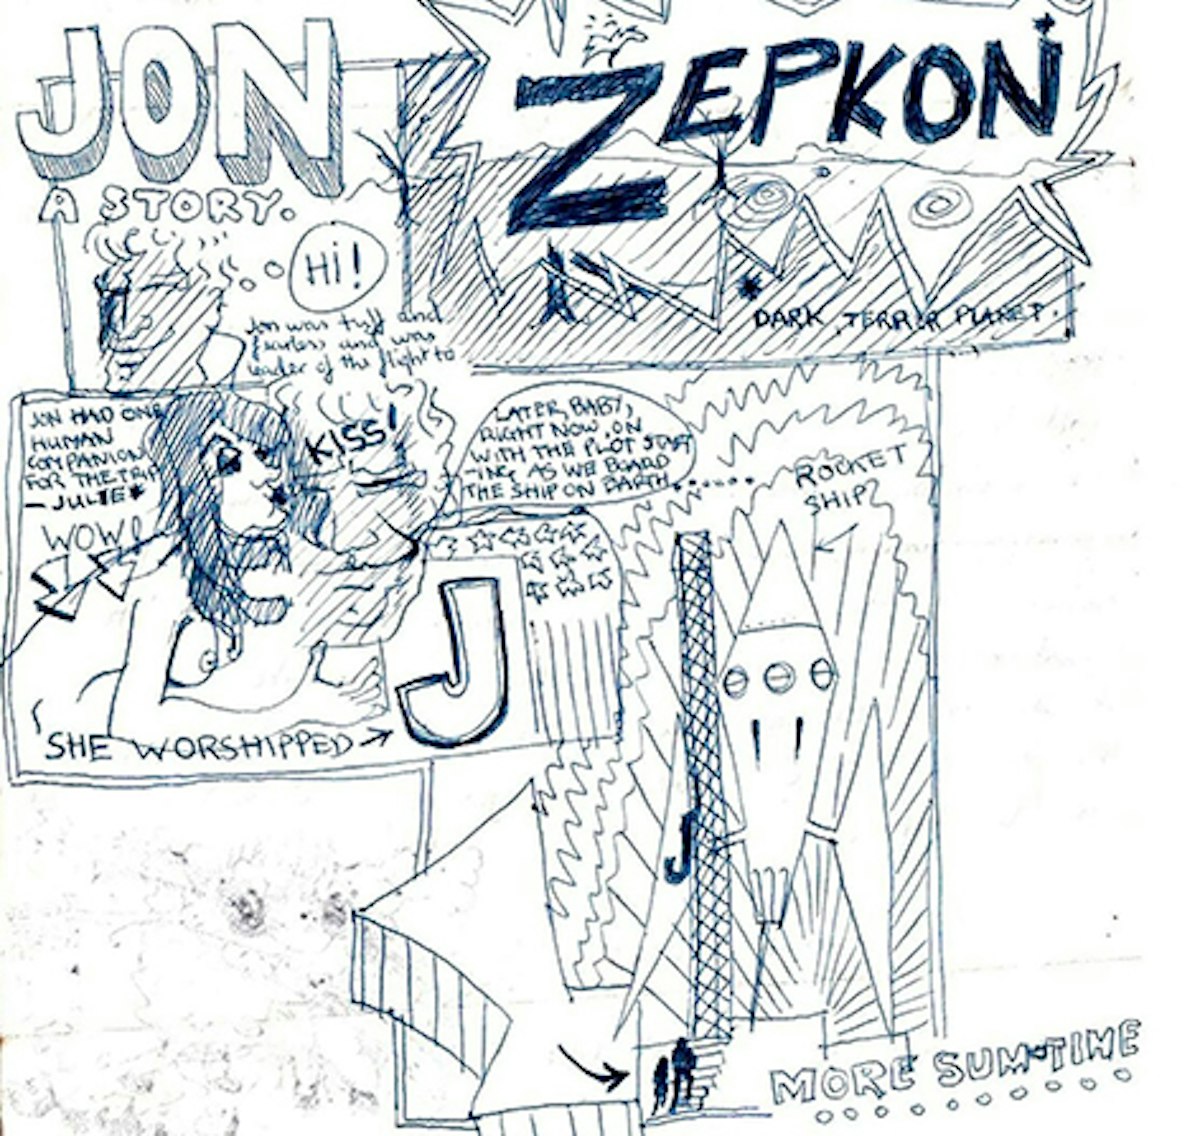 JON
A STORY.
Hi!
Jon was tuff and
fearless and was
leader of the flight to
ZEPKON
DARK TERRIR PLANET.
JON HAD ONE
HUMAN
COMPANION
FOR THE TRIP
- JULIE*
WOW!
KISS!
LATER, BABY,
RIGHT NOW, ON
WITH THE PLOT START
-ING AS WE BOARD
THE SHIP ON EARTH......
SHE WORSHIPPED →
J
ROCKET
SHIP
J
MORE SUM-TIME